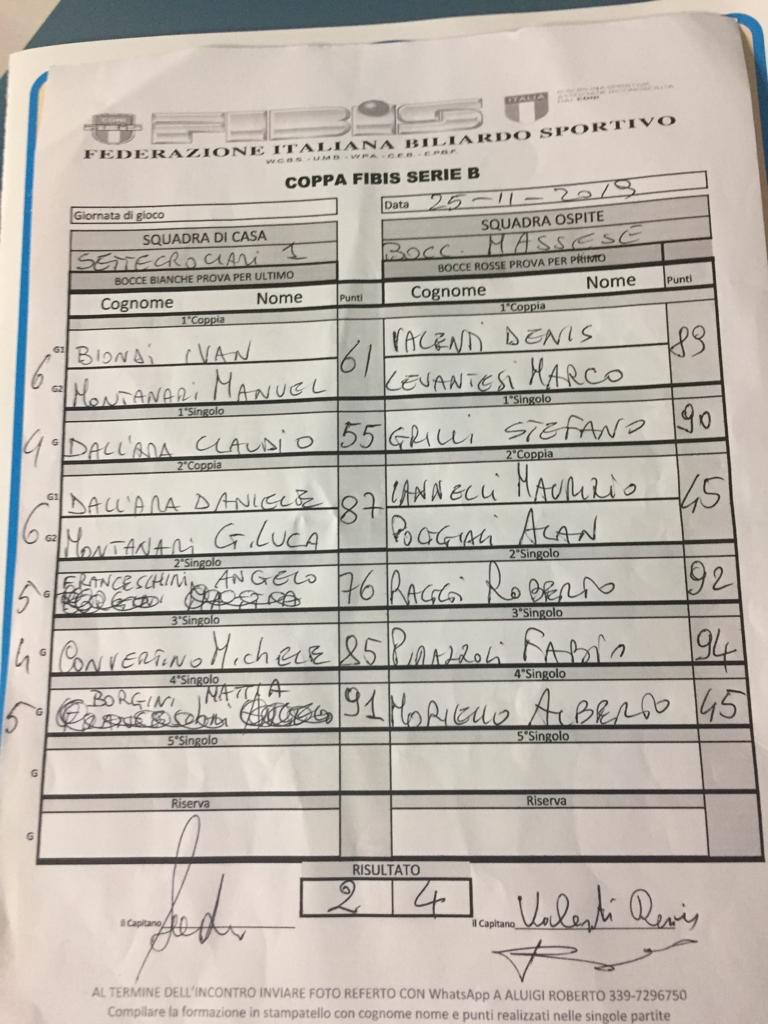 FIBIS
ITALIA
FEDERAZIONE ITALIANA BILIARDO SPORTIVO
W.C.B.S - U.M.B - W.P.A - C.E.B - E.P.B.F.
COPPA FIBIS SERIE B
Giornata di gioco
Data 25-11-2019
SQUADRA DI CASA
SQUADRA OSPITE
SETTECROCIARI 1
BOCC. MASSESE
BOCCE BIANCHE PROVA PER ULTIMO
BOCCE ROSSE PROVA PER PRIMO
Cognome Nome Punti
Cognome Nome Punti
1°Coppia
1°Coppia
6 G1 BIONDI IVAN 61
VALENTI DENIS 89
G2 MONTANARI MANUEL
LEVANTESI MARCO
1°Singolo
1°Singolo
4 G DALL'ARA CLAUDIO 55
GRILLI STEFANO 90
2°Coppia
2°Coppia
6 G1 DALL'ARA DANIELE 87
IANNELLI MAURIZIO 45
G2 MONTANARI G.LUCA
POGGIALI ALAN
2°Singolo
2°Singolo
5 G FRANCESCHINI ANGELO 76
RAGGI ROBERTO 92
3°Singolo
3°Singolo
4 G CONVERTINO MICHELE 85
PIRAZZOLI FABIO 94
4°Singolo
4°Singolo
5 G BORGINI MATTIA 91
MORIELLO ALBERTO 45
5°Singolo
5°Singolo
G
Riserva
Riserva
G
RISULTATO
2 4
Il Capitano
Il Capitano Valenti Denis
AL TERMINE DELL'INCONTRO INVIARE FOTO REFERTO CON WhatsApp A ALUIGI ROBERTO 339-7296750
Compilare la formazione in stampatello con cognome nome e punti realizzati nelle singole partite